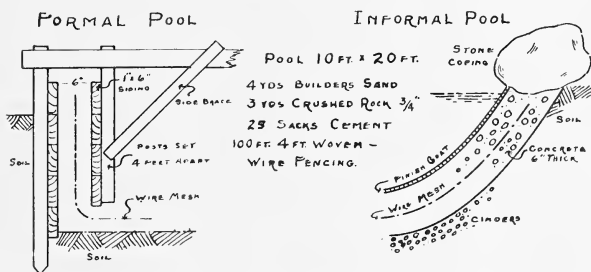 FORMAL POOL
6"
1"x 6"
SIDING
SIDE BRACE
SOIL
POSTS SET
4 FEET APART
WIRE MESH
SOIL
POOL 10 FT. x 20 FT.
4 YDS BUILDERS SAND
3 YDS CRUSHED ROCK 3/4"
25 SACKS CEMENT
100 FT. 4 FT. WOVEN -
WIRE FENCING.
INFORMAL POOL
STONE
COPING
SOIL
CONCRETE
6" THICK
FINISH COAT
WIRE MESH
CINDERS